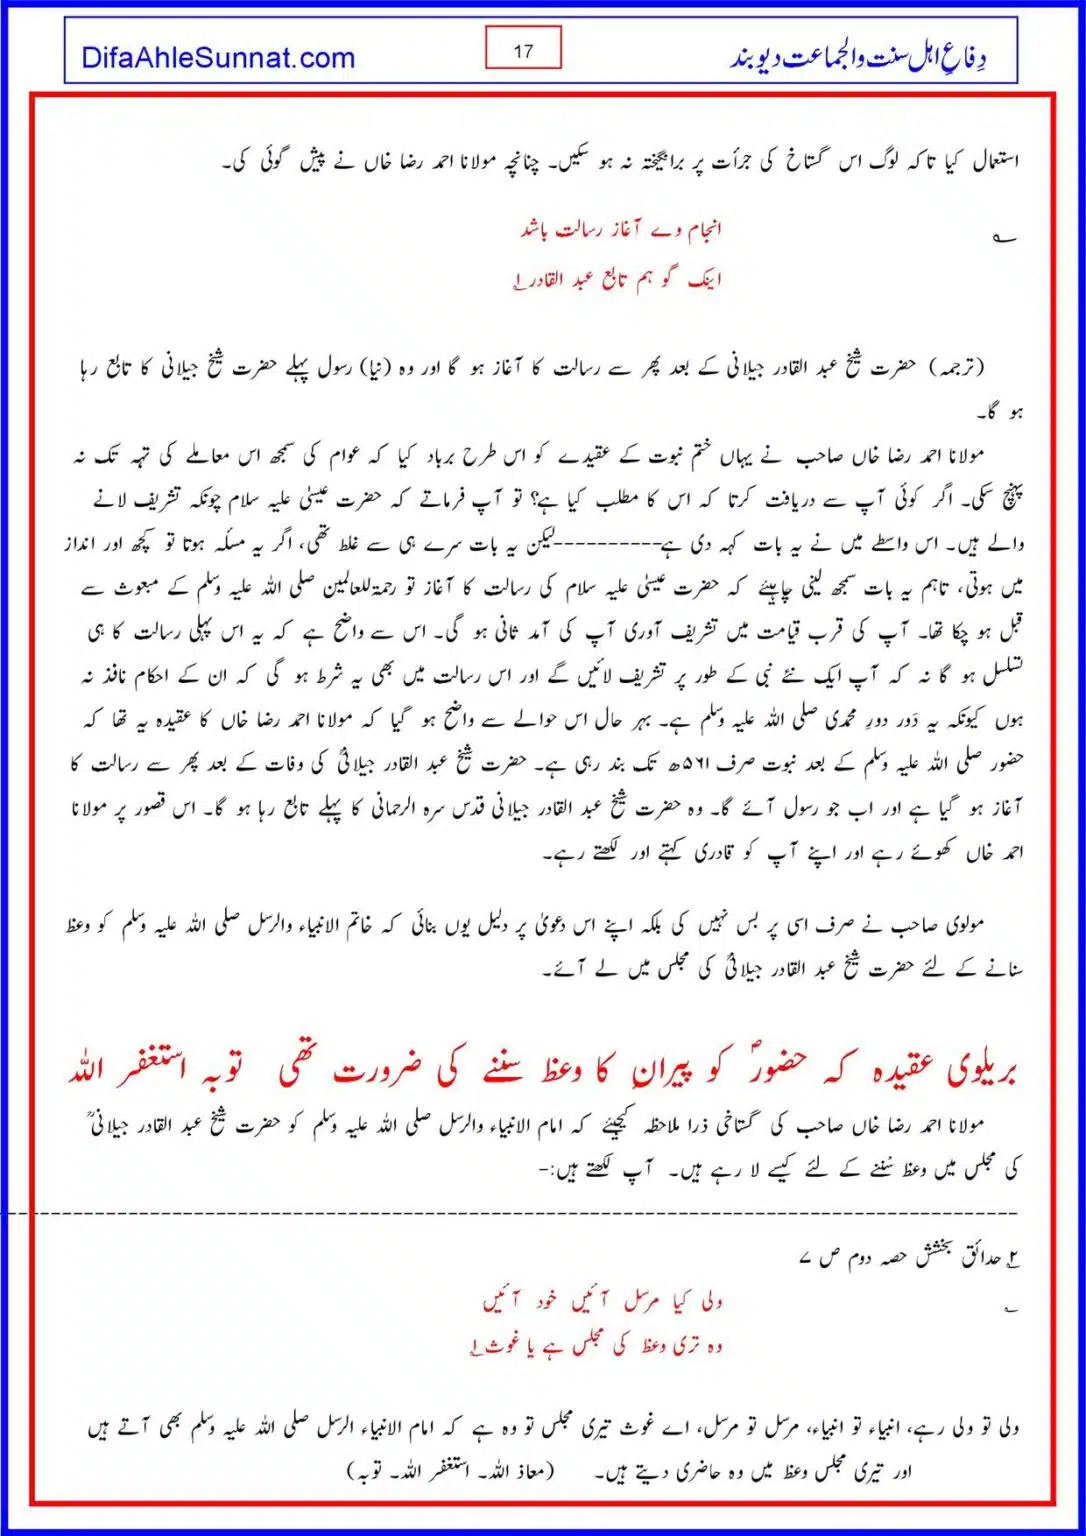 DifaAhleSunnat.com
17
دِفاعِ اہل سنت والجماعت دیوبند
استعمال کیا تاکہ لوگ اس گستاخ کی جرأت پر برانگیختہ نہ ہو سکیں۔ چنانچہ مولانا احمد رضا خاں نے پیش گوئی کی۔
انجام وے آغاز رسالت باشد
اینک گو ہم تابع عبد القادر۱
(ترجمہ) حضرت شیخ عبد القادر جیلانی کے بعد پھر سے رسالت کا آغاز ہو گا اور وہ (نیا) رسول پہلے حضرت شیخ جیلانی کا تابع رہا
ہو گا۔
مولانا احمد رضا خاں صاحب نے یہاں ختم نبوت کے عقیدے کو اس طرح برباد کیا کہ عوام کی سمجھ اس معاملے کی تہہ تک نہ
پہنچ سکی۔ اگر کوئی آپ سے دریافت کرتا کہ اس کا مطلب کیا ہے؟ تو آپ فرماتے کہ حضرت عیسیٰ علیہ سلام چونکہ تشریف لانے
والے ہیں۔ اس واسطے میں نے یہ بات کہہ دی ہے----------لیکن یہ بات سرے ہی سے غلط تھی، اگر یہ مسئلہ ہوتا تو کچھ اور انداز
میں ہوتی، تاہم یہ بات سمجھ لینی چاہیئے کہ حضرت عیسیٰ علیہ سلام کی رسالت کا آغاز تو رحمۃ للعالمین صلی اللہ علیہ وسلم کے مبعوث سے
قبل ہو چکا تھا۔ آپ کی قرب قیامت میں تشریف آوری آپ کی آمد ثانی ہو گی۔ اس سے واضح ہے کہ یہ اس پہلی رسالت کا ہی
تسلسل ہو گا نہ کہ آپ ایک نئے نبی کے طور پر تشریف لائیں گے اور اس رسالت میں بھی یہ شرط ہو گی کہ ان کے احکام نافذ نہ
ہوں کیونکہ یہ دَور دورِ محمدی صلی اللہ علیہ وسلم ہے۔ بہر حال اس حوالے سے واضح ہو گیا کہ مولانا احمد رضا خاں کا عقیدہ یہ تھا کہ
حضور صلی اللہ علیہ وسلم کے بعد نبوت صرف ۵۶۱ھ تک بند رہی ہے۔ حضرت شیخ عبد القادر جیلانیؒ کی وفات کے بعد پھر سے رسالت کا
آغاز ہو گیا ہے اور اب جو رسول آئے گا۔ وہ حضرت شیخ عبد القادر جیلانی قدس سرہ الرحمانی کا پہلے تابع رہا ہو گا۔ اس قصور پر مولانا
احمد خاں کھوئے رہے اور اپنے آپ کو قادری کہتے اور لکھتے رہے۔
مولوی صاحب نے صرف اسی پر بس نہیں کی بلکہ اپنے اس دعویٰ پر دلیل یوں بنائی کہ خاتم الانبیاء والرسل صلی اللہ علیہ وسلم کو وعظ
سنانے کے لئے حضرت شیخ عبد القادر جیلانیؒ کی مجلس میں لے آئے۔
بریلوی عقیدہ کہ حضورؐ کو پیرانِ کا وعظ سننے کی ضرورت تھی توبہ استغفر اللہ
مولانا احمد رضا خاں صاحب کی گستاخی ذرا ملاحظہ کیجیئے کہ امام الانبیاء والرسل صلی اللہ علیہ وسلم کو حضرت شیخ عبد القادر جیلانیؒ
کی مجلس میں وعظ سُننے کے لئے کیسے لا رہے ہیں۔ آپ لکھتے ہیں:-
۲ حدائق بخشش حصہ دوم ص ۷
ولی کیا مرسل آئیں خود آئیں
وہ تری وعظ کی مجلس ہے یا غوث۱
ولی تو ولی رہے، انبیاء تو انبیاء، مرسل تو مرسل، اے غوث تیری مجلس تو وہ ہے کہ امام الانبیاء الرسل صلی اللہ علیہ وسلم بھی آتے ہیں
اور تیری مجلس وعظ میں وہ حاضری دیتے ہیں۔ (معاذ اللہ۔ استغفر اللہ۔ توبہ)